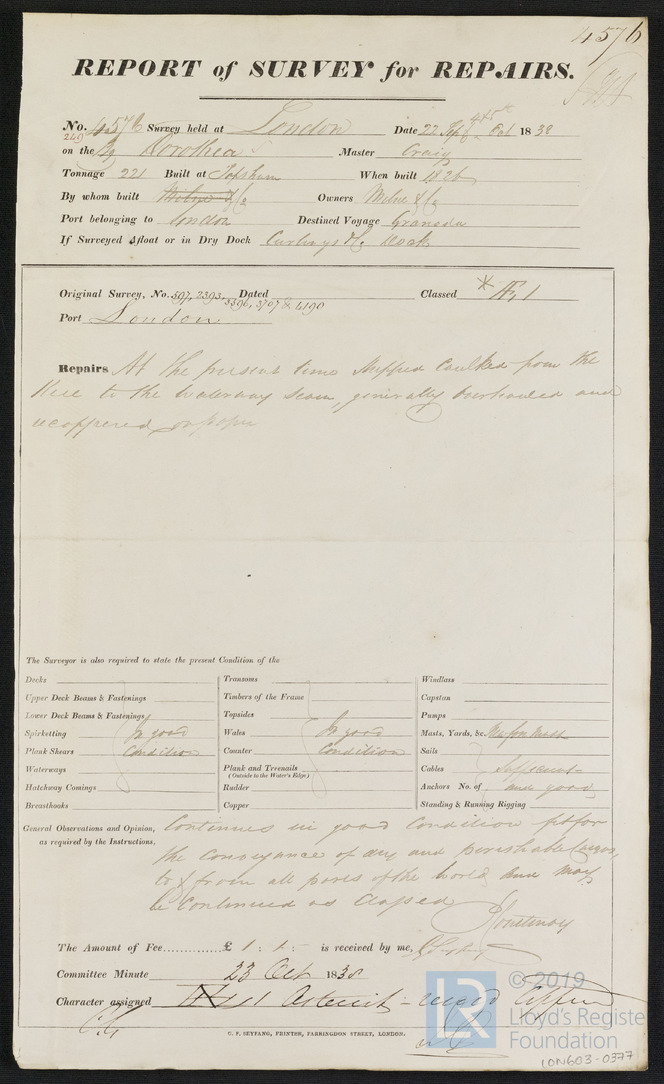 4576
REPORT of SURVEY for REPAIRS.
No. 4576 Survey held at London Date 22 Sept 4 & 5th Oct 1838
249
on the Bg Dorothea Master Craig
Tonnage 221 Built at Topsham When built 1826
By whom built Owners Milne & Co
Port belonging to London Destined Voyage Granada
If Surveyed Afloat or in Dry Dock Curlings & Co. Dock
Original Survey, No. 597, 2393, 3396, 3707 & 4190 Dated Classed * Æ 1
Port London
Repairs At the present time stripped caulked from the
Keel to the Waterway Seam, generally overhauled and
recoppered
The Surveyor is also required to state the present Condition of the
Decks Transoms Windlass
Upper Deck Beams & Fastenings Timbers of the Frame Capstan
Lower Deck Beams & Fastenings Topsides Pumps
Spirketting In good Wales In good Masts, Yards, &c.
Plank Shears Condition Counter Condition Sails
Waterways Plank and Treenails (Outside to the Water's Edge) Cables Sufficient
Hatchway Comings Rudder Anchors No. of and good
Breasthooks Copper Standing & Running Rigging
General Observations and Opinion, Continues in good condition fit for
as required by the Instructions. the conveyance of dry and perishable Cargoes,
to & from all parts of the World and may
be Continued as Classed
Courtenay
The Amount of Fee £ 1 : 1 : - is received by me,
Committee Minute 23 Oct 1838
Character assigned
C. F. SEYFANG, PRINTER, FARRINGDON STREET, LONDON.
LR
© 2019
Lloyd's Registe
Foundation
LON603-0377